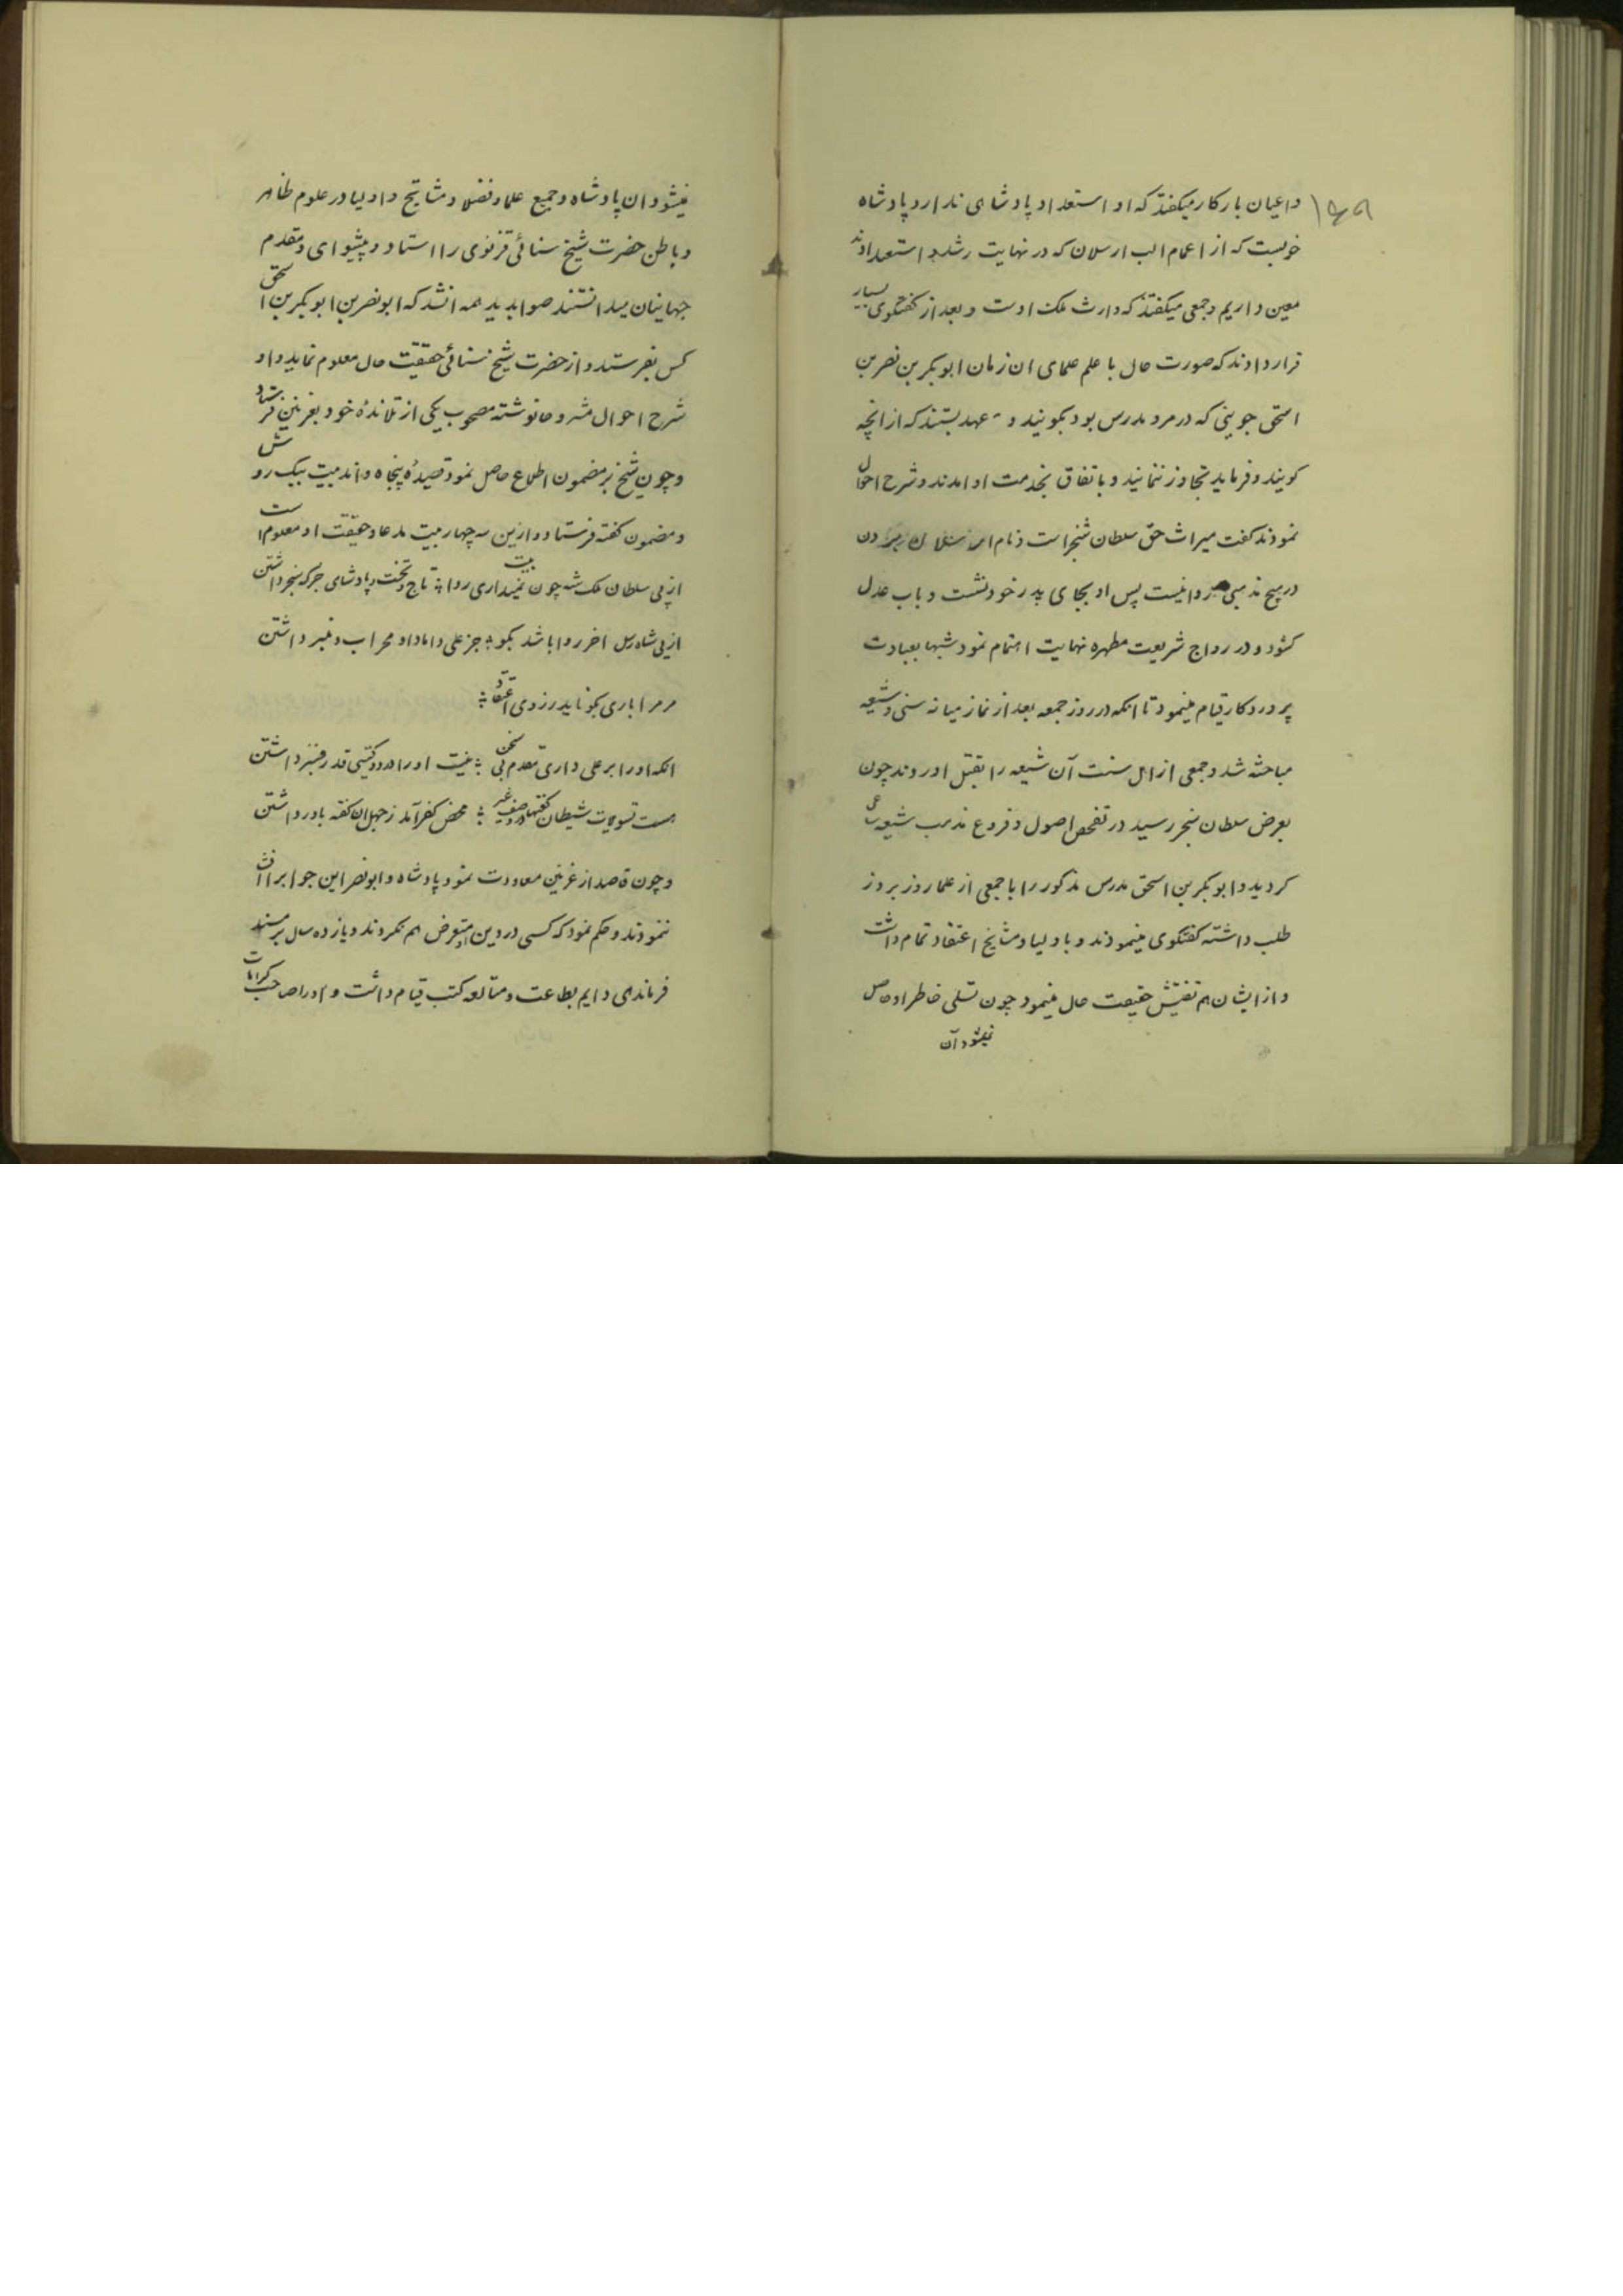 ۱۵۹
واعیان بارکار میکفتند که او استعداد پادشاهی ندارد پادشاه
خوبست که از اعمام الب ارسلان که در نهایت رشد و استعدادند
معین داریم و جمعی میکفتند که وارث ملک اوست و بعد از کفتکوی بسیار
قرار دادند که صورت حال با علم علمای ان زمان ابوبکر بن نصر بن
اسحق جوینی که در مرو مدرس بود بکویند و عهد بستند که از انچه
کویند و فرماید تجاوز ننمایند و باتفاق بخدمت او امدند و شرح احوال
نمودند کفت میراث حق سلطان سنجر است
در هیچ مذهبی روا نیست پس او بجای پدر خود نشست و باب عدل
کشود و در رواج شریعت مطهره نهایت اهتمام نمود شبها بعبادت
پروردکار قیام مینمود تا انکه در روز جمعه بعد از نماز میانه سنی و شیعه
مباحثه شد و جمعی از اهل سنت آن شیعه را بقتل اوردند چون
بعرض سلطان سنجر رسید در تفحص اصول و فروع مذهب شیعه ساعی
کردید و ابوبکر بن اسحق مدرس مذکور را با جمعی از علما روز بروز
طلب داشته کفتکوی مینمودند و باولیا و مشایخ اعتقاد تمام داشت
و از ایشان هم تفتیش حقیقت حال مینمود چون تسلی خاطر او حاصل
نمیشود آن
نمیشود ان پادشاه و جمیع علما و فضلا و مشایخ و اولیا در علوم ظاهر
و باطن حضرت شیخ سنائی قزنوی را استاد و پیشوای و مقدم
جهانیان میدانستند صوابدید همه انشد که ابونصر بن ابوبکر بن اسحق
کس بفرستد و از حضرت شیخ سنائی حقیقت حال معلوم نماید و او
شرح احوال مشروحا نوشته مصحوب یکی از تلامذهٔ خود بغزنین فرستاد
و چون شیخ بر مضمون اطلاع حاصل نمود قصیدهٔ پنجاه و اند بیت بیک روش
و مضمون کفته فرستاد و ازین سه چهار بیت مدعا و حقیقت او معلوم است
بیت
از پی سلطان ملک شه چون نمیداری روا ؞ تاج و تخت و پادشاهی جز که سنجر داشتن
از پی شاه رسل اخر روا باشد بکو ؞ جز علی داماد او محراب و منبر داشتن
مر مرا باری نکو ناید ز روی اعتقاد ؞
انکه او را بر علی داری مقدم بی سخن ؞ نیست او را در دو کیتی قدر قنبر داشتن
هست تسویلات شیطان کفتها در وصف غیر ؞ محض کفر آمد ز جهل ان کفته باور داشتن
و چون قاصد از غزنین معاودت نمود پادشاه و ابونصر این جوابرا افشا
ننمودند و حکم نمود که کسی در دین متعرض هم نکردند و یازده سال بر مسند
فرماندهی دایم بطاعت و متالعه کتب قیام داشت و او را صاحب کرامات